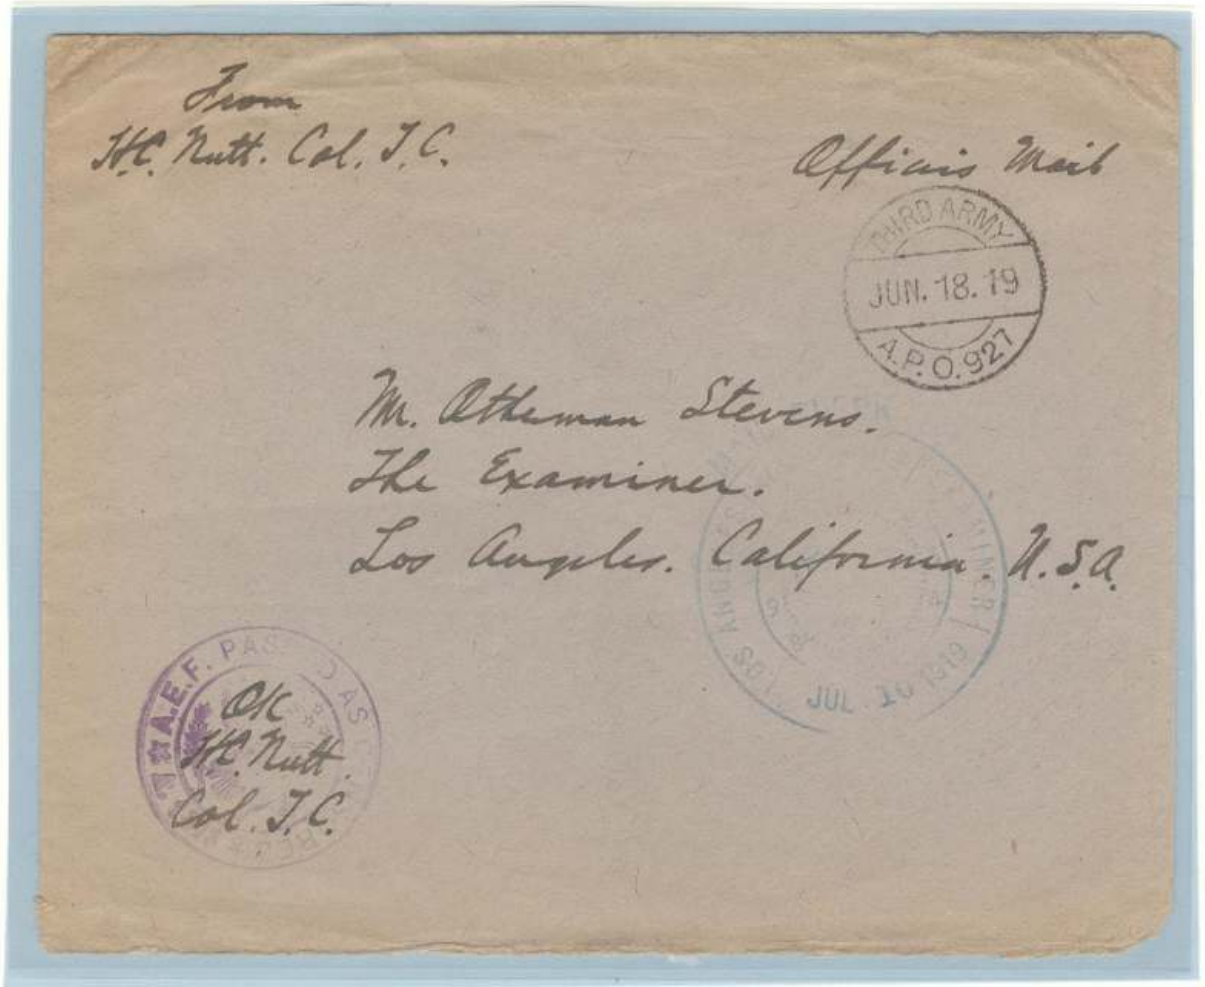 From
H.C. Nutt. Col. T.C.
Officers Mail
THIRD ARMY
JUN. 18. 19
A.P.O. 927
Mr. Otheman Stevens.
The Examiner.
Los Angeles. California. U.S.A.
LOS ANGELES EXAMINER
JUL 10 1919
A.E.F. PASSED AS CENSORED
OK
H.C. Nutt.
Col. T.C.